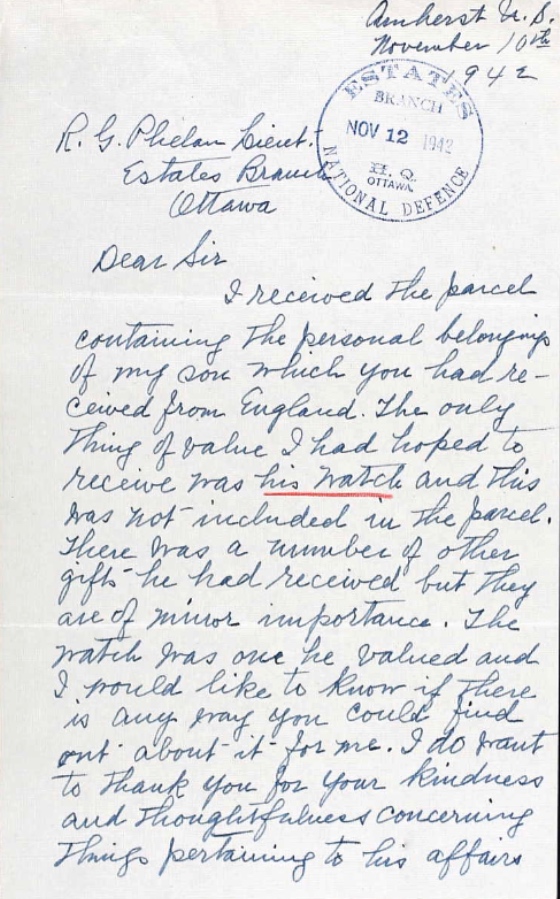 Amherst N.S.
November 10th
1942
ESTATES
BRANCH
NOV 12 1942
H. Q.
OTTAWA.
NATIONAL DEFENCE
R. G. Phelan Lieut.
Estates Branch
Ottawa
Dear Sir
I received the parcel
containing the personal belongings
of my son which you had re-
ceived from England. The only
thing of value I had hoped to
receive was his watch and this
was not included in the parcel.
There was a number of other
gifts he had received but they
are of minor importance. The
watch was one he valued and
I would like to know if there
is any way you could find
out about it for me. I do want
to thank you for your kindness
and thoughtfulness concerning
things pertaining to his affairs